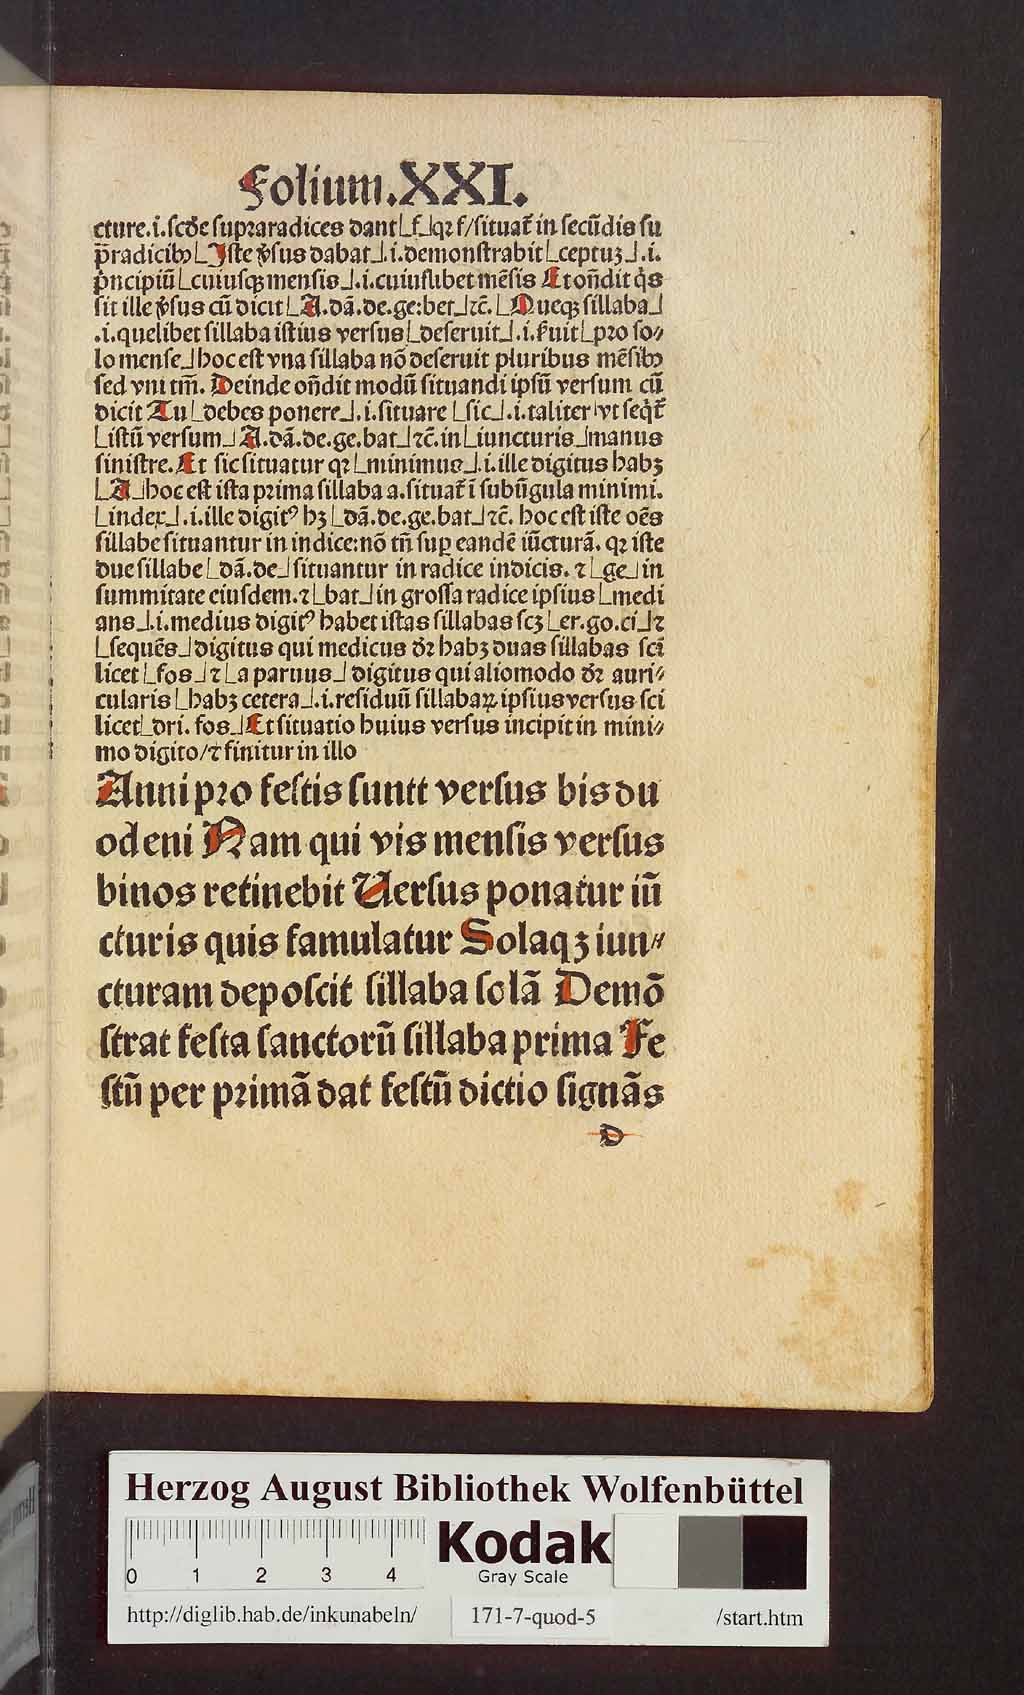 Folium.XXI.
cture.i.scd̄e supraradices dant⌊f⌋qꝛ f/situat̄ in secūdis su
p̄radicibꝫ⌊Iste v̄sus dabat⌋.i.demonstrabit⌊ceptuꝫ⌋.i.
pͥncipiū⌊cuiusqꝫ mensis⌋.i.cuiuslibet mēsis Et oñdit qͥs
sit ille v̄sus cū dicit⌊A.dā.de.ge:bet⌋ꝛc̄.⌊Queqꝫ sillaba⌋
.i.quelibet sillaba istius versus⌊deseruit⌋.i.ẜuit⌊pro so⸗
lo mense⌋hoc est vna sillaba nō deseruit pluribus mēsibꝫ
sed vni tm̄. Deinde oñdit modū situandi ipsū versum cū
dicit Tu⌊debes ponere⌋.i.situare⌊sic⌋.i.taliter vt seqͥt̄
⌊istū versum⌋A.dā.de.ge.bat⌋ꝛc̄.in⌊iuncturis⌋manus
sinistre.Et sic situatur qꝛ⌊minimus⌋.i.ille digitus habꝫ
⌊A⌋hoc est ista prima sillaba a.situat̄ ī subūgula minimi.
⌊index⌋.i.ille digitꝰ hꝫ⌊dā.de.ge.bat⌋ꝛc̄. hoc est iste oēs
sillabe situantur in indice:nō tn̄ suꝑ eandē iūcturā.qꝛ iste
due sillabe⌊dā.de⌋situantur in radice indicis.ꝛ⌊ge⌋in
summitate eiusdem.ꝛ⌊bat⌋in grossa radice ipsius⌊medi
ans⌋.i.medius digitꝰ habet istas sillabas scꝫ⌊er.go.ci⌋ꝛ
⌊sequēs⌋digitus qui medicus dr̄ habꝫ duas sillabas sci
licet⌊fos⌋ꝛ⌊a paruus⌋digitus qui aliomodo dr̄ auri⸗
cularis⌊habꝫ cetera⌋.i.residuū sillabaꝝ ipsius versus sci
licet⌊dri.fos⌋Et situatio huius versus incipit in mini⸗
mo digito/ꝛ finitur in illo
Anni pro festis suntt versus bis du
odeni Nam qui vis mensis versus
binos retinebit Uersus ponatur iū
cturis quis famulatur Solaqꝫ iun⸗
cturam deposcit sillaba solā Demō
strat festa sanctorū sillaba prima Fe
stū per primā dat festū dictio signās
D
Herzog August Bibliothek Wolfenbüttel
0 1 2 3 4
Kodak
Gray Scale
http://diglib.hab.de/inkunabeln/ 171-7-quod-5 /start.htm